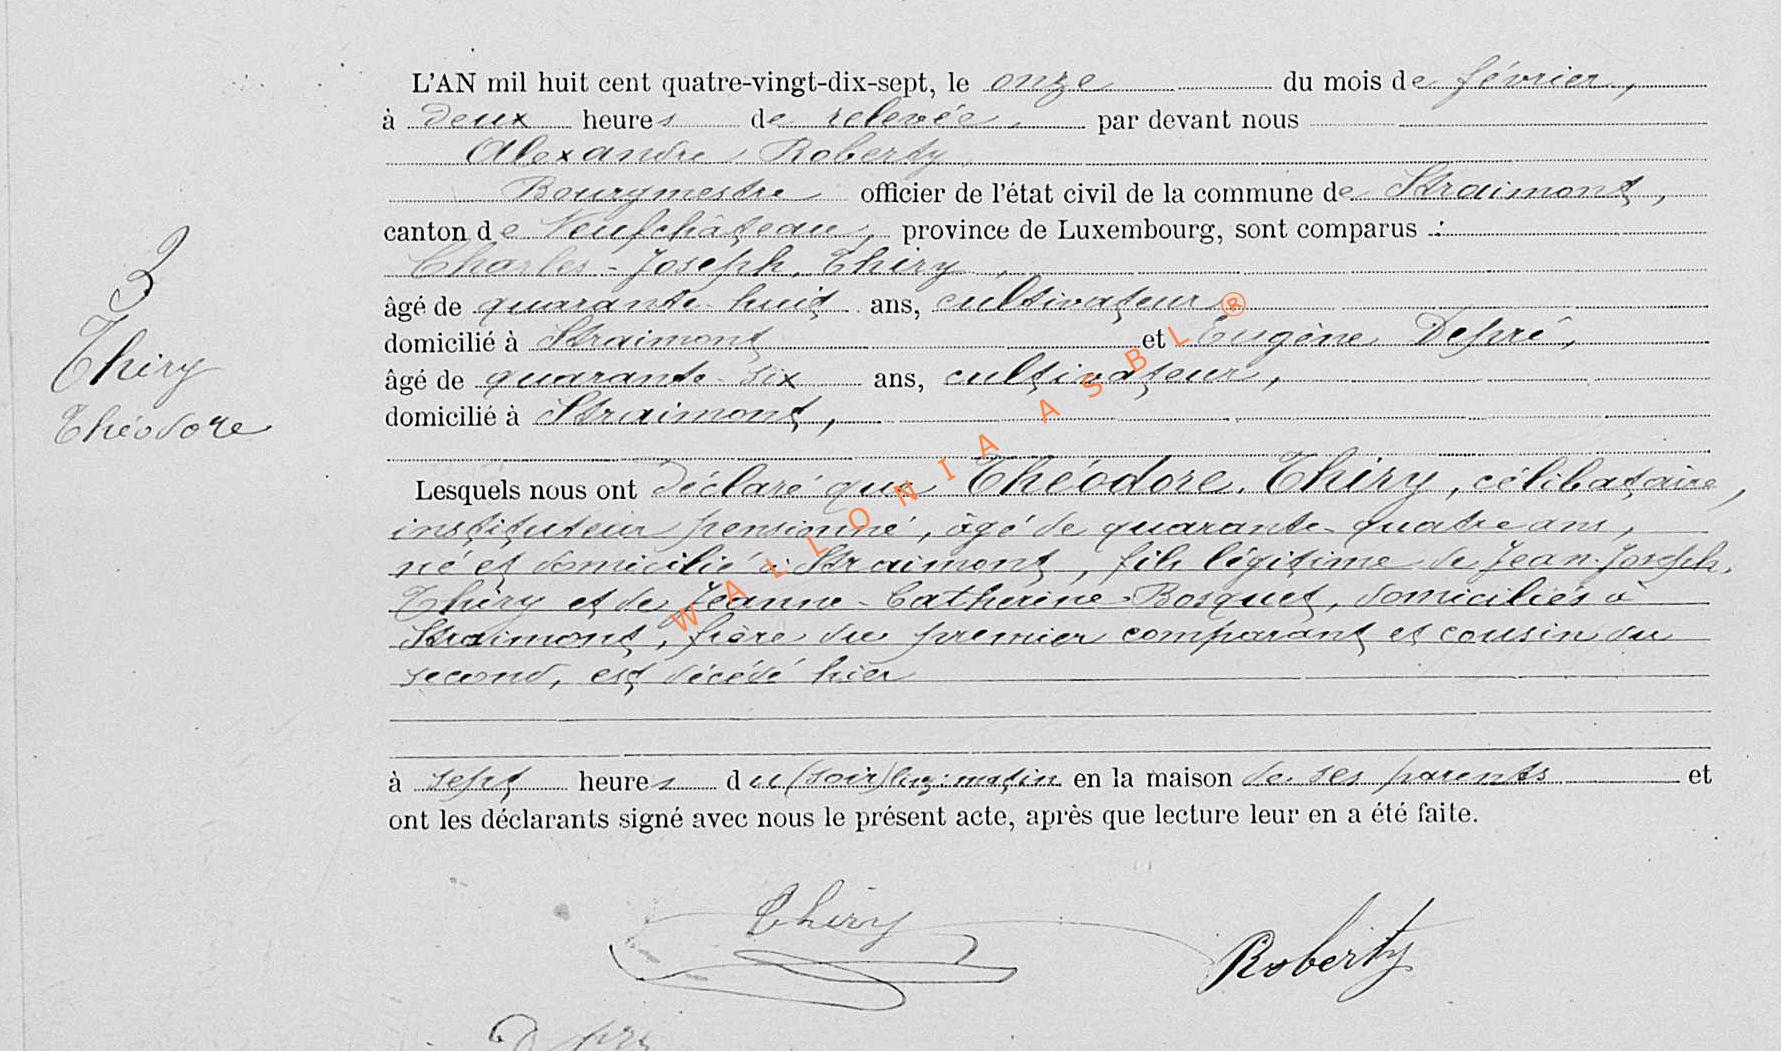 L'AN mil huit cent quatre-vingt-dix-sept, le onze du mois de février,
à deux heures de relevée, par devant nous
Alexandre Roberty,
Bourgmestre officier de l'état civil de la commune de Straimont,
canton de Neufchâteau, province de Luxembourg, sont comparus :
Charles-Joseph Thiry,
âgé de quarante-huit ans, cultivateur
domicilié à Straimont et Eugène Depré,
âgé de quarante-six ans, cultivateur,
domicilié à Straimont,
3
Thiry
Théodore
Lesquels nous ont déclaré que Théodore Thiry, célibataire,
instituteur pensionné, âgé de quarante-quatre ans,
né et domicilié à Straimont, fils légitime de Jean-Joseph
Thiry et de Jeanne-Catherine Bosquet, domiciliés à
Straimont, frère du premier comparant et cousin du
second, est décédé hier
à sept heures du (soir) matin en la maison de ses parents et
ont les déclarants signé avec nous le présent acte, après que lecture leur en a été faite.
Thiry
Roberty
WALLONIA ASBL ®